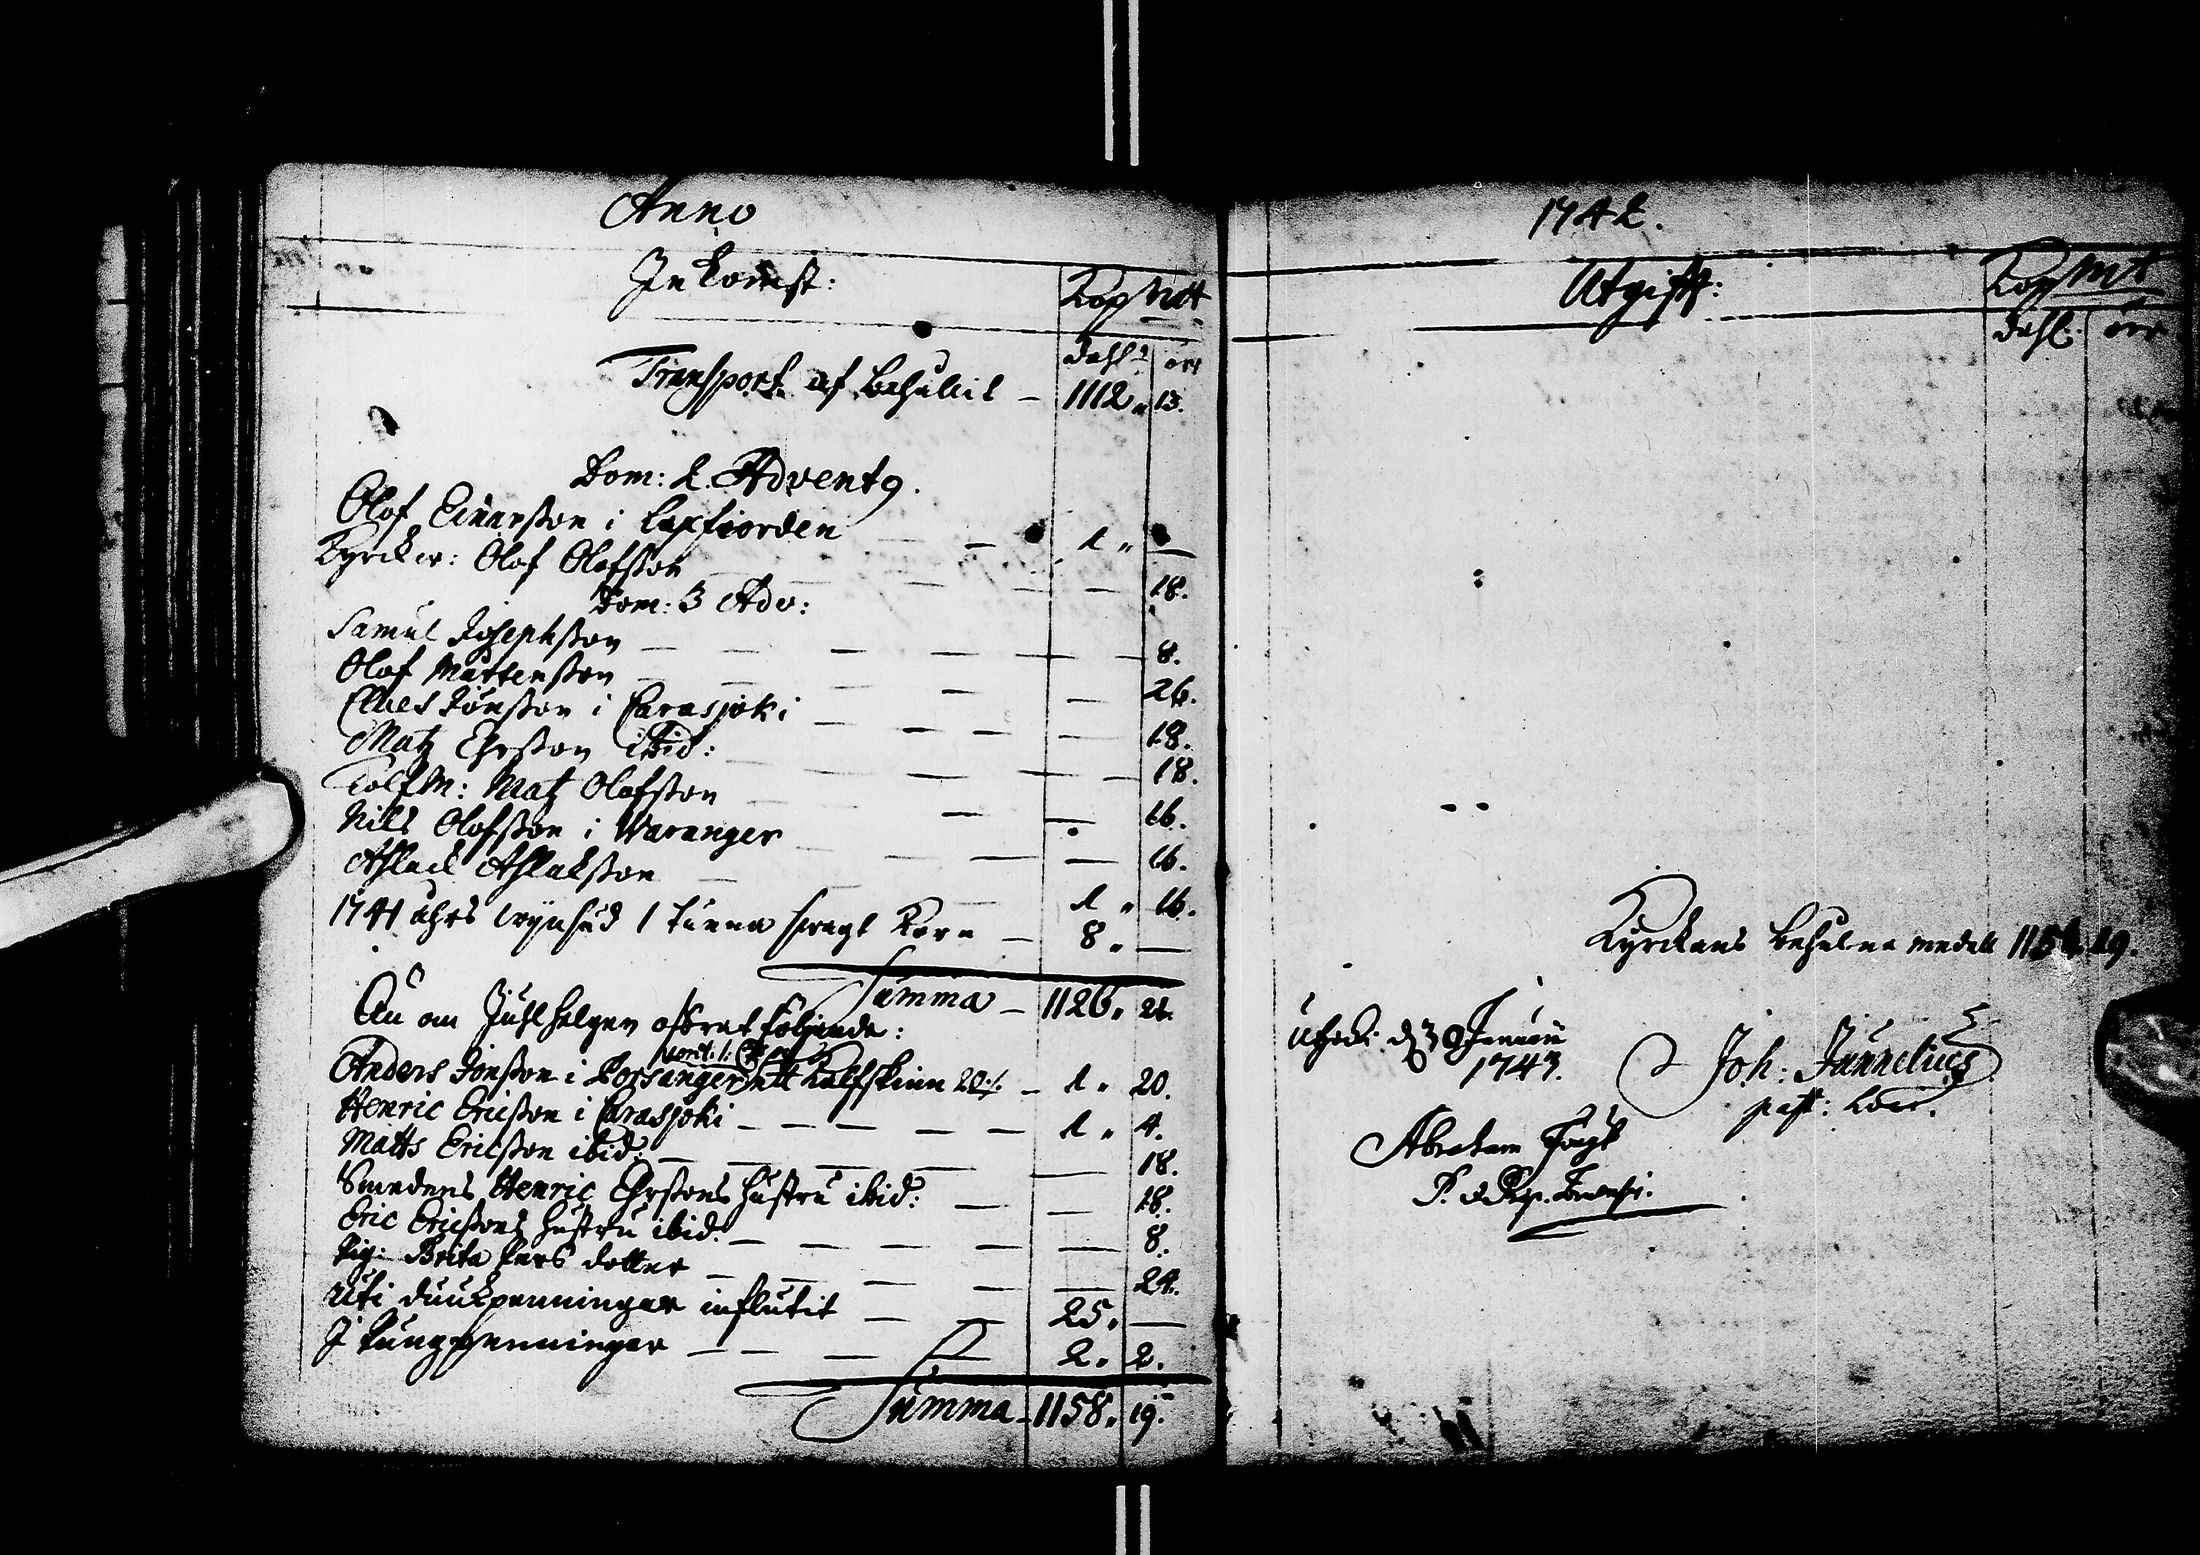 Anno
Inkomst:
Kop Mtt
dahl: ör
Transport af behållit — 1112 „ 13.
Dom: 2. Advent9.
Olof Einarsson i Laxfiorden — 1 „ —
Kyrckw: Olof Olofsson — — 18.
Dom: 3 Adv:
Samul Josephsson — — 8.
Olof Mattensson — — 26.
Claes Jönsson i Carasjoki — — 18.
Matz Ehrsson ibid: — — 18.
Tolfm: Matz Olofsson — — 16.
Nils Olofsson i Waranger — — 16.
Aslack Aslaksson — 1 „ 16.
1741 åhrs 1 tunna Korn — 8 „ —
Summa — 1126 „ 21.
Än om Juhlhelgen offrat följande:
Anders Jonsson i Porsanger ett Kalfskinn 20 — 1 „ 20.
Henric Ericsson i Carasjoki — 1 „ 4.
Matts Ericsson ibid: — — 18.
Smedens Henric Ehrssons hustru ibid: — — 18.
Eric Ericssons hustru ibid: — — 8.
Pig: Brita Pers dotter — — 24.
Uti duukpenningar influtit — 25 „ —
I pungpenningar — 2 „ 2.
Summa — 1158 „ 19.
1742.
Utgift:
Kop Mt
dahl: ör
Kyrckans behåldna medell 1158 19.
Utzjocki d. Januarii
1743.
Joh: Junnelius
past: loci.
Abraham